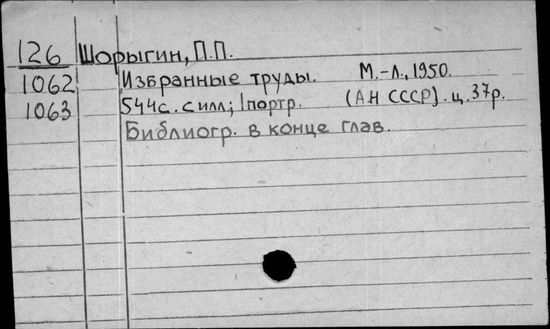 126 Шорыгин, П.П.
1062 Избранные труды. М.-Л., 1950.
1063 544с. с илл; 1портр. (АН СССР). ц. 37р.
Библиогр. в конце глав.